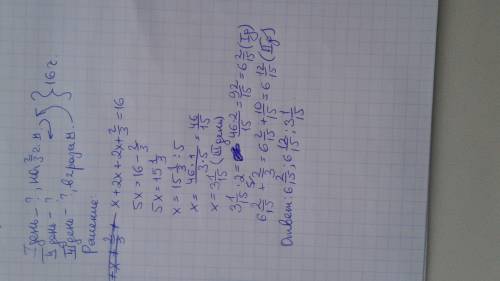 I день - ?, на 2/3 г. н.
II день - ?
III день - ?, в 2 раза м.
} 16 г.
Решение:
x + 2x + 2x + 2/3 = 16
5x = 16 - 2/3
5x = 15 1/3
x = 15 1/3 : 5
x = 46·1/3·5 = 46/15
x = 3 1/15 (III день)
3 1/15 · 2 = 46·2/15 = 92/15 = 6 2/15 (I д)
6 2/15 + 2/3 = 6 2/15 + 10/15 = 6 12/15 (II д)
Ответ: 6 2/15; 6 12/15; 3 1/15